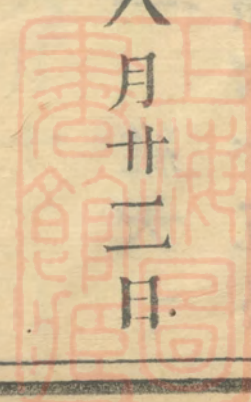 八月廿二日
上海圖
書館藏